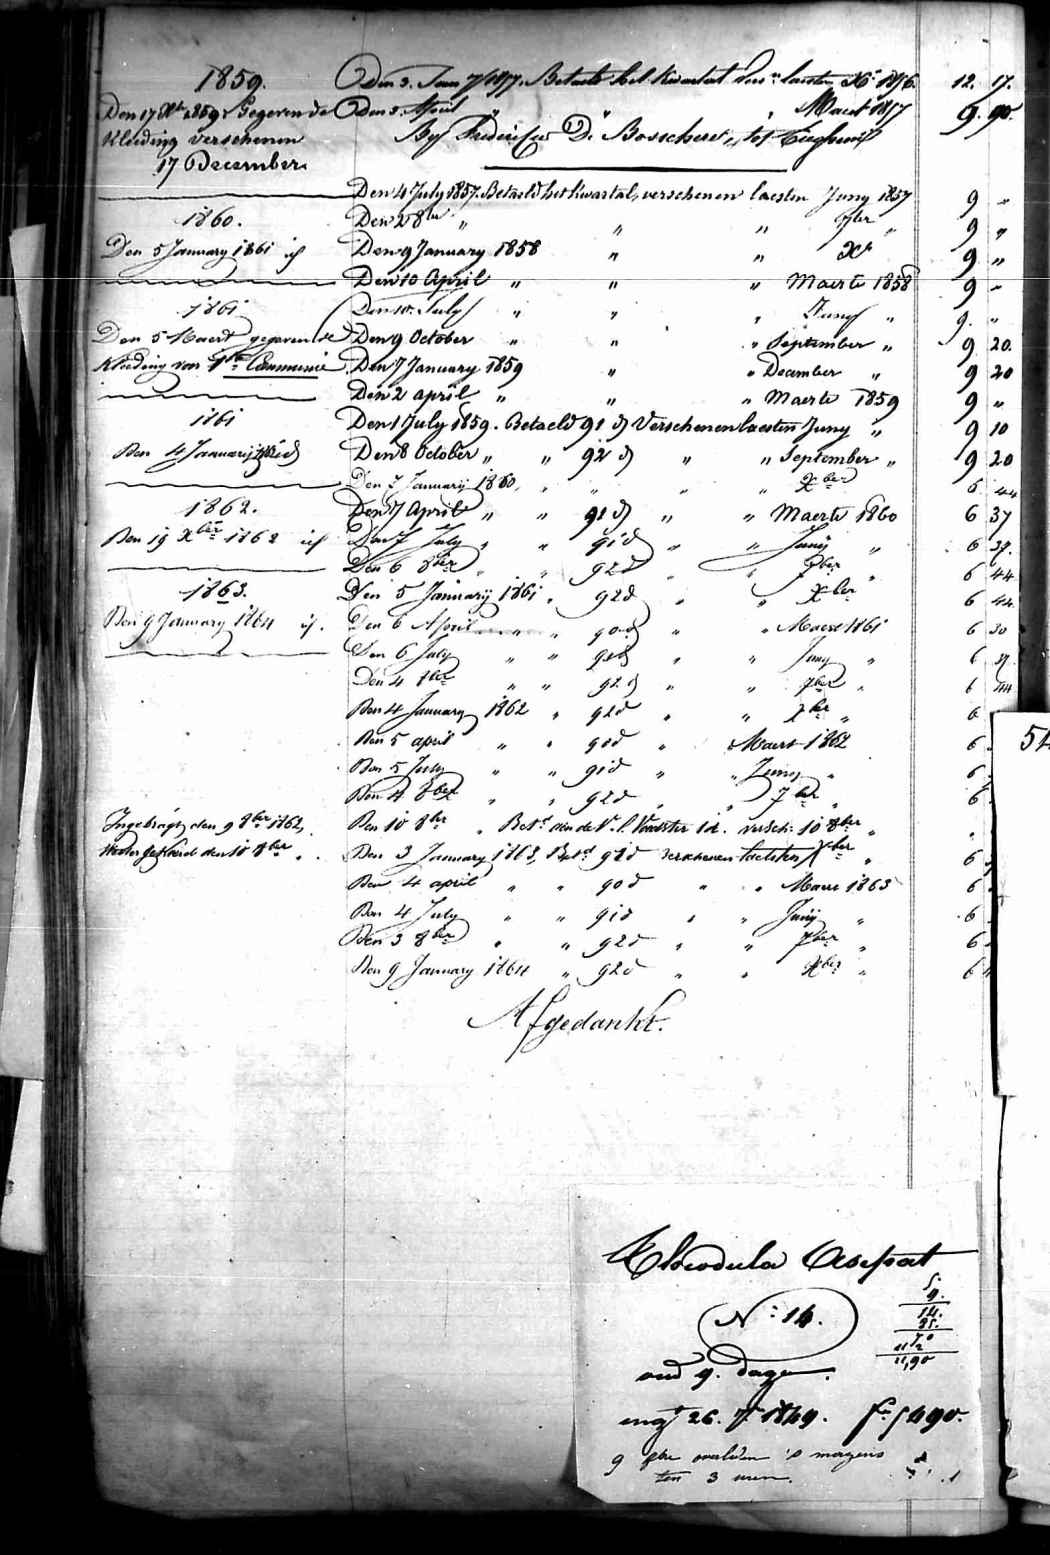 1859.
Den 17 Xbr 1859 Gegeven de
Kleeding verschenen
17 December
1860.
Den 5 January 1861 id
1861
Den 5 Maert gegeven de
Kleeding voor 1ste Communie
1861
Den 4 January
1862.
Den 19 Xber 1862 id
1863.
Den 9 January 1864 id.
Ingebragt den 9 8ber 1862,
Weder den 10 8ber "
Den 3. Betaelt het kwartaet laesten 12. 17.
Den 3. April " " Maert 1857 9. 90.
By De Bosscher, tot
Den 4 July 1857. Betaeld het kwartal, verschenen laesten Juny 1857 9 "
Den 2 8ber " " " 7ber " 9 "
Den 9 January 1858 " " Xbr 9 "
Den 10 April " " " Maerte 1858 9 "
Den 10 July " " " Juny " 9. "
Den 9 October " " " September " 9 20.
Den 7 January 1859 " " December " 9 20
Den 2 april " " " Maerte 1859 9 "
Den 1 July 1859. Betaeld 91 d Verschenen laesten Juny " 9 10
Den 8 October " " 92 d " " September " 9 20
Den 7 January 1860 " " " " Xber 6 44
Den 7 April " " 91 d " " Maerte 1860 6 37
Den 7 July " " 91 d " " Junÿ " 6 37.
Den 6 8ber " " 92 d " " 7ber " 6 44
Den 5 Januarÿ 1861 " 92 d " " Xber 6 44
Den 6 April " " 90 d " " Maert 1861 6 30
Den 6 July " " 91 d " " Juny " 6 37
Den 4 8ber " " 92 d " " 7ber " 6 44
Den 4 January 1862 " 92 d " " Xber " 6
Den 5 april " " 90 d " " Maert 1862 6
Den 5 July " " 91 d " " Juny " 6
Den 4 8ber " " 92 d " " 7ber " 6
Den 10 8ber " Bet. aen de versch. 10 8ber "
Den 3 January 1863, Bet. 92 d verschenen laesten Xber " 6
Den 4 april " " 90 d " " Maert 1863 6
Den 4 July " " 91 d " " Junÿ " 6
Den 3 8ber " " 92 d " " 7ber " 6
Den 9 January 1864 " 92 d " " Xber " 6
Afgedankt.
54
N° 14.
oud 9. dagen.
26. 1849. 490.
9 overleden 's morgens
ten 3 uren.
9.
14.
35.
11,90